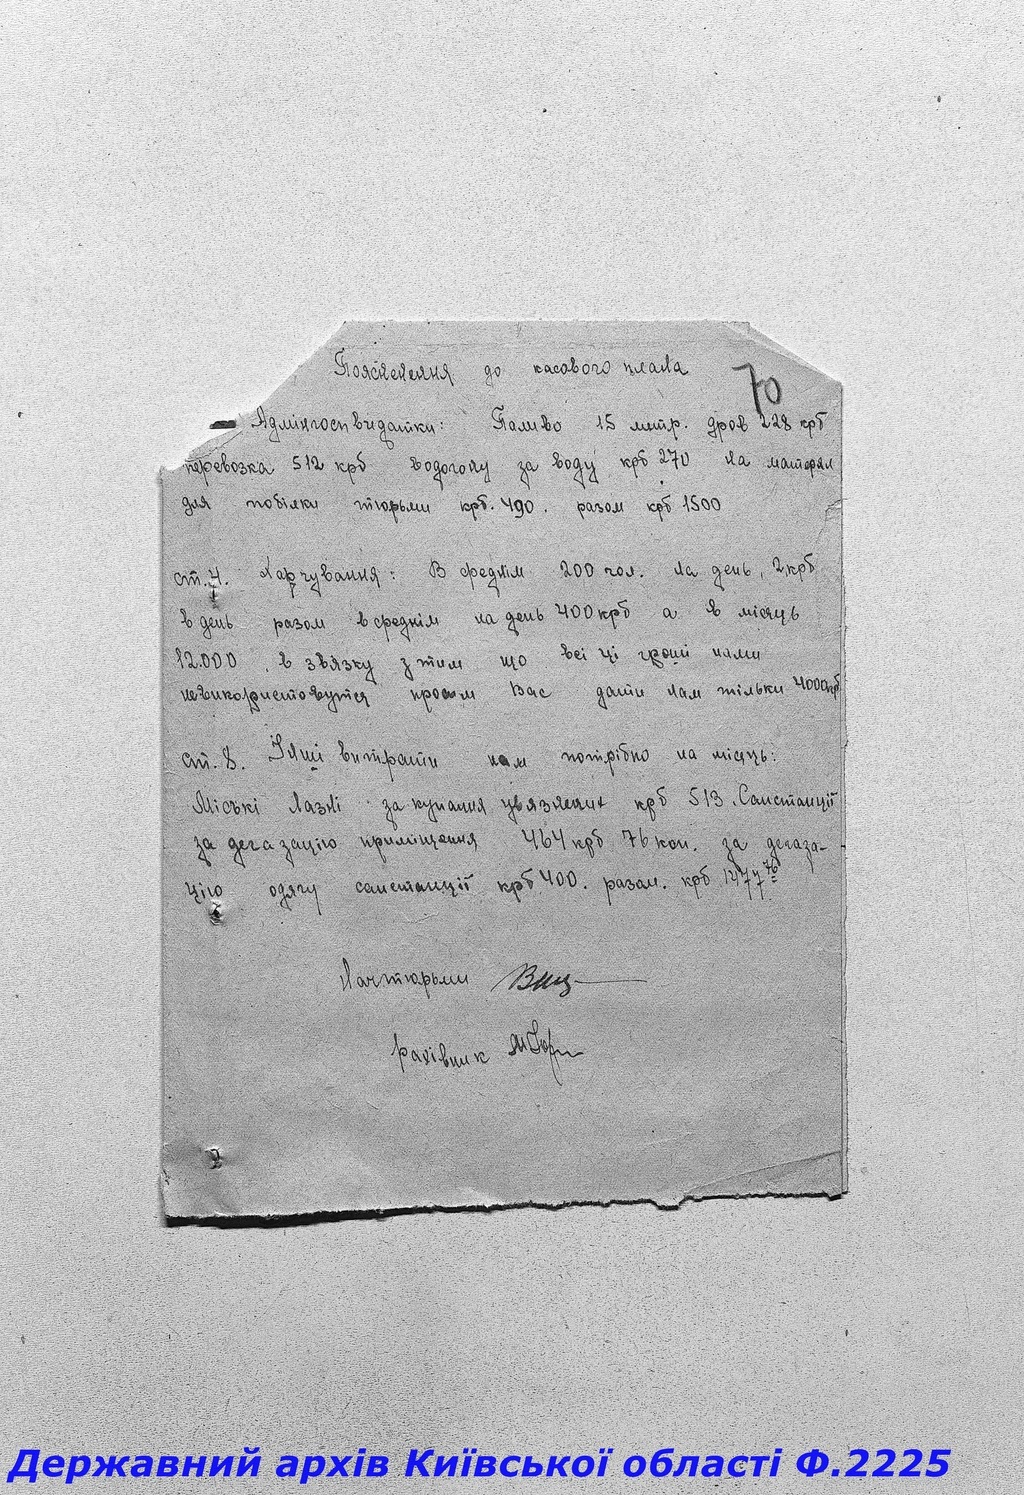 Пояснення до касового плана
70
Адмінгоспвидатки: Паливо 15 метр. дров 228 крб
перевозка 512 крб водогону за воду крб 270 на матерял
для побілки тюрьми крб. 490. разом крб 1500
ст. 4. Харчування: В среднім 200 чол. на день, 2 крб
в день разом всреднім на день 400 крб а в місяць
12.000 . в звязку з тим що всі ці гроші нами
невикористовутся просим Вас дати нам тільки 4000 крб
ст. 8. Інші витрати нам потрібно на місяць:
Міські Лазні за купання увязнених крб 513. Санстанції
за дегазацію приміщення 464 крб 76 коп. за дегаза-
цію одягу санстанції крб 400. разом. крб 1377 76
Начтюрьми
рахівник
Державний архів Київської області Ф.2225